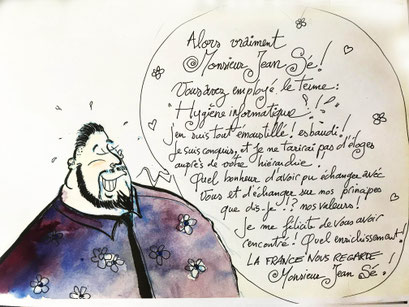 Alors vraiment
Monsieur Jean Sé!
Vous avez employé le terme:
"Hygiène informatique"!!!
j'en suis tout émoustillé! esbaudi!!
je suis conquis, et je ne tarirai pas d'éloges
auprès de votre hiérarchie!!
Quel bonheur d'avoir pu échanger avec
vous et d'échanger sur nos principes
que dis-je!? nos valeurs!
Je me félicite de vous avoir
rencontré! Quel enrichissement!
LA FRANCE NOUS REGARDE
Monsieur Jean Sé!